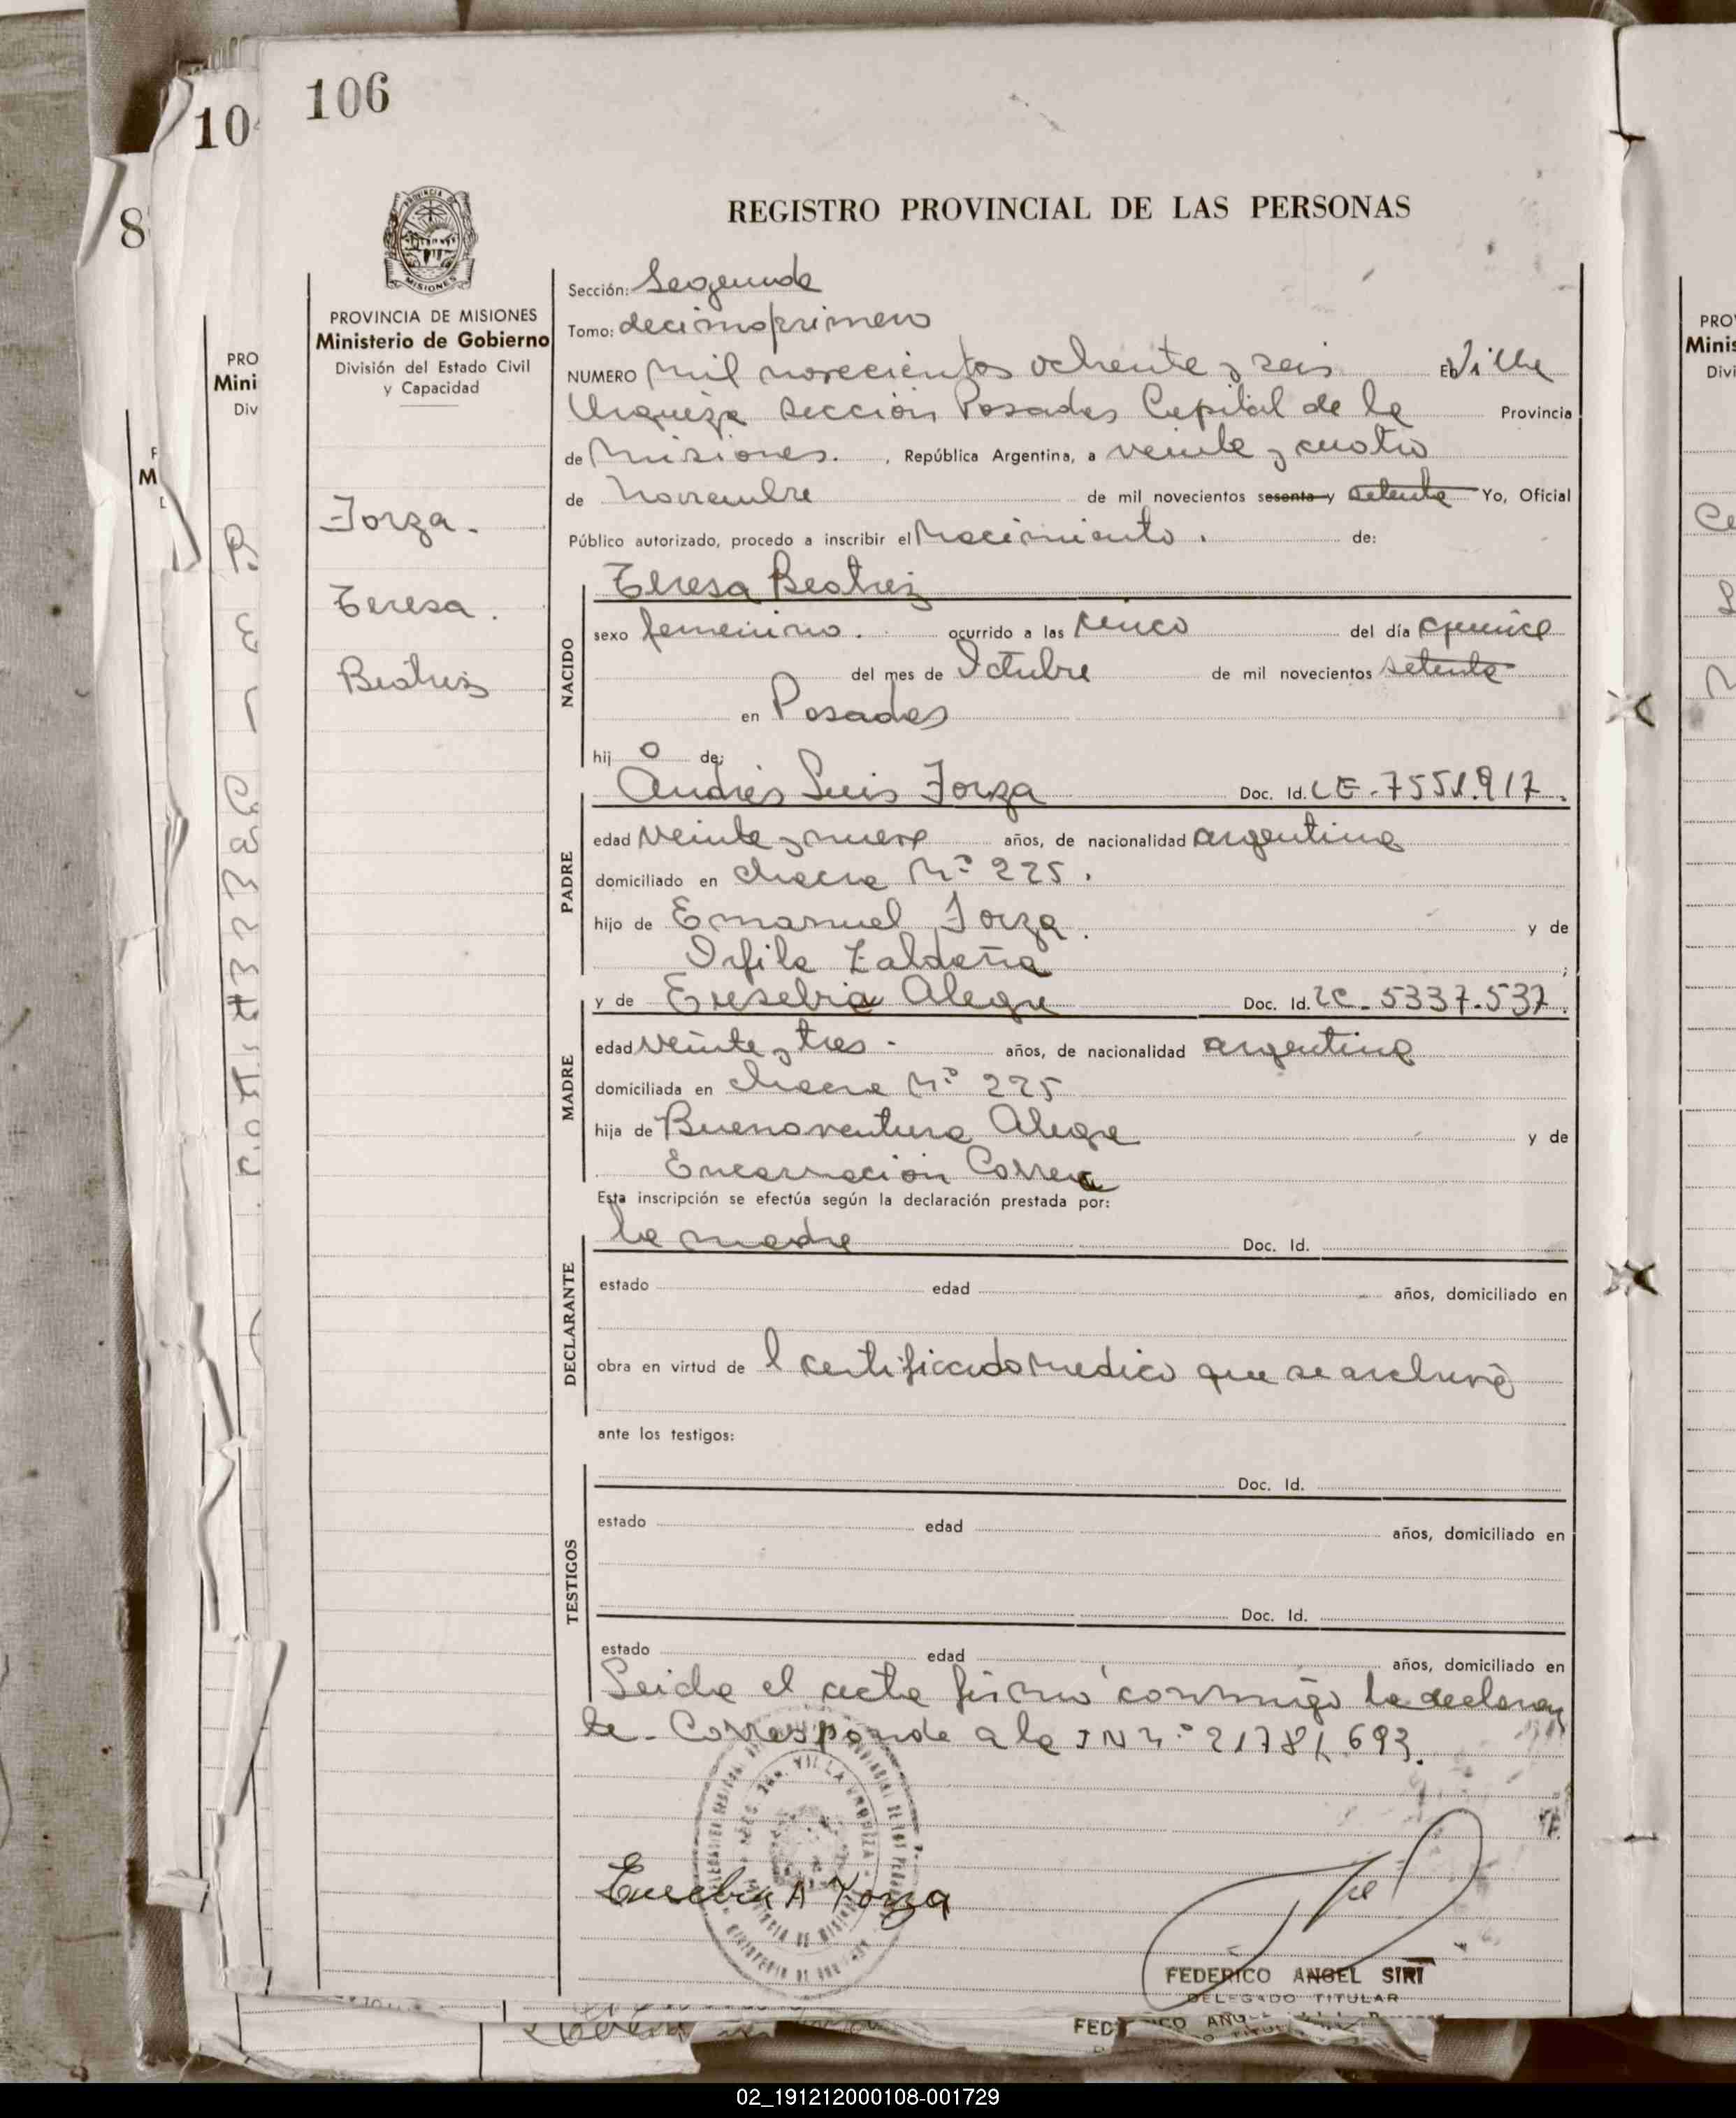 106
10
8
REGISTRO PROVINCIAL DE LAS PERSONAS
PROVINCIA DE MISIONES
Ministerio de Gobierno
División del Estado Civil
y Capacidad
Jorza.
Teresa.
Beatriz
Sección: Segunda
Tomo: decimoprimero
NUMERO Mil novecientos ochenta y seis En Villa
Urquiza sección Posadas Capital de la Provincia
de Misiones. , República Argentina, a veinte y cuatro
de Noviembre de mil novecientos sesenta y setenta Yo, Oficial
Público autorizado, procedo a inscribir el Nacimiento. de:
NACIDO
Teresa Beatriz
sexo femenino. ocurrido a las cinco del día quince
del mes de Octubre de mil novecientos setenta
en Posadas
hij o de:
PADRE
Andrés Luis Jorza Doc. Id. LE-7551.917.
edad veinte y nueve años, de nacionalidad argentina
domiciliado en chacra Nº 225.
hijo de Emanuel Jorza. y de
Orfila Zaldaña ;
MADRE
y de Eusebia Alegre Doc. Id. LC-5337.537.
edad veinte y tres. años, de nacionalidad argentina
domiciliada en chacra Nº 225
hija de Buenaventura Alegre y de
Encarnación Correa
Esta inscripción se efectúa según la declaración prestada por:
DECLARANTE
la madre Doc. Id.
estado edad años, domiciliado en
obra en virtud de l certificado medico que se archiva
ante los testigos:
TESTIGOS
Doc. Id.
estado edad años, domiciliado en
Doc. Id.
estado edad años, domiciliado en
Leida el acta firmó conmigo la declaran
te. Corresponde a la IN nº 21781.693.
VILLA URQUIZA
Eusebia A Jorza
FEDERICO ANGEL SIRI
DELEGADO TITULAR
02_191212000108-001729